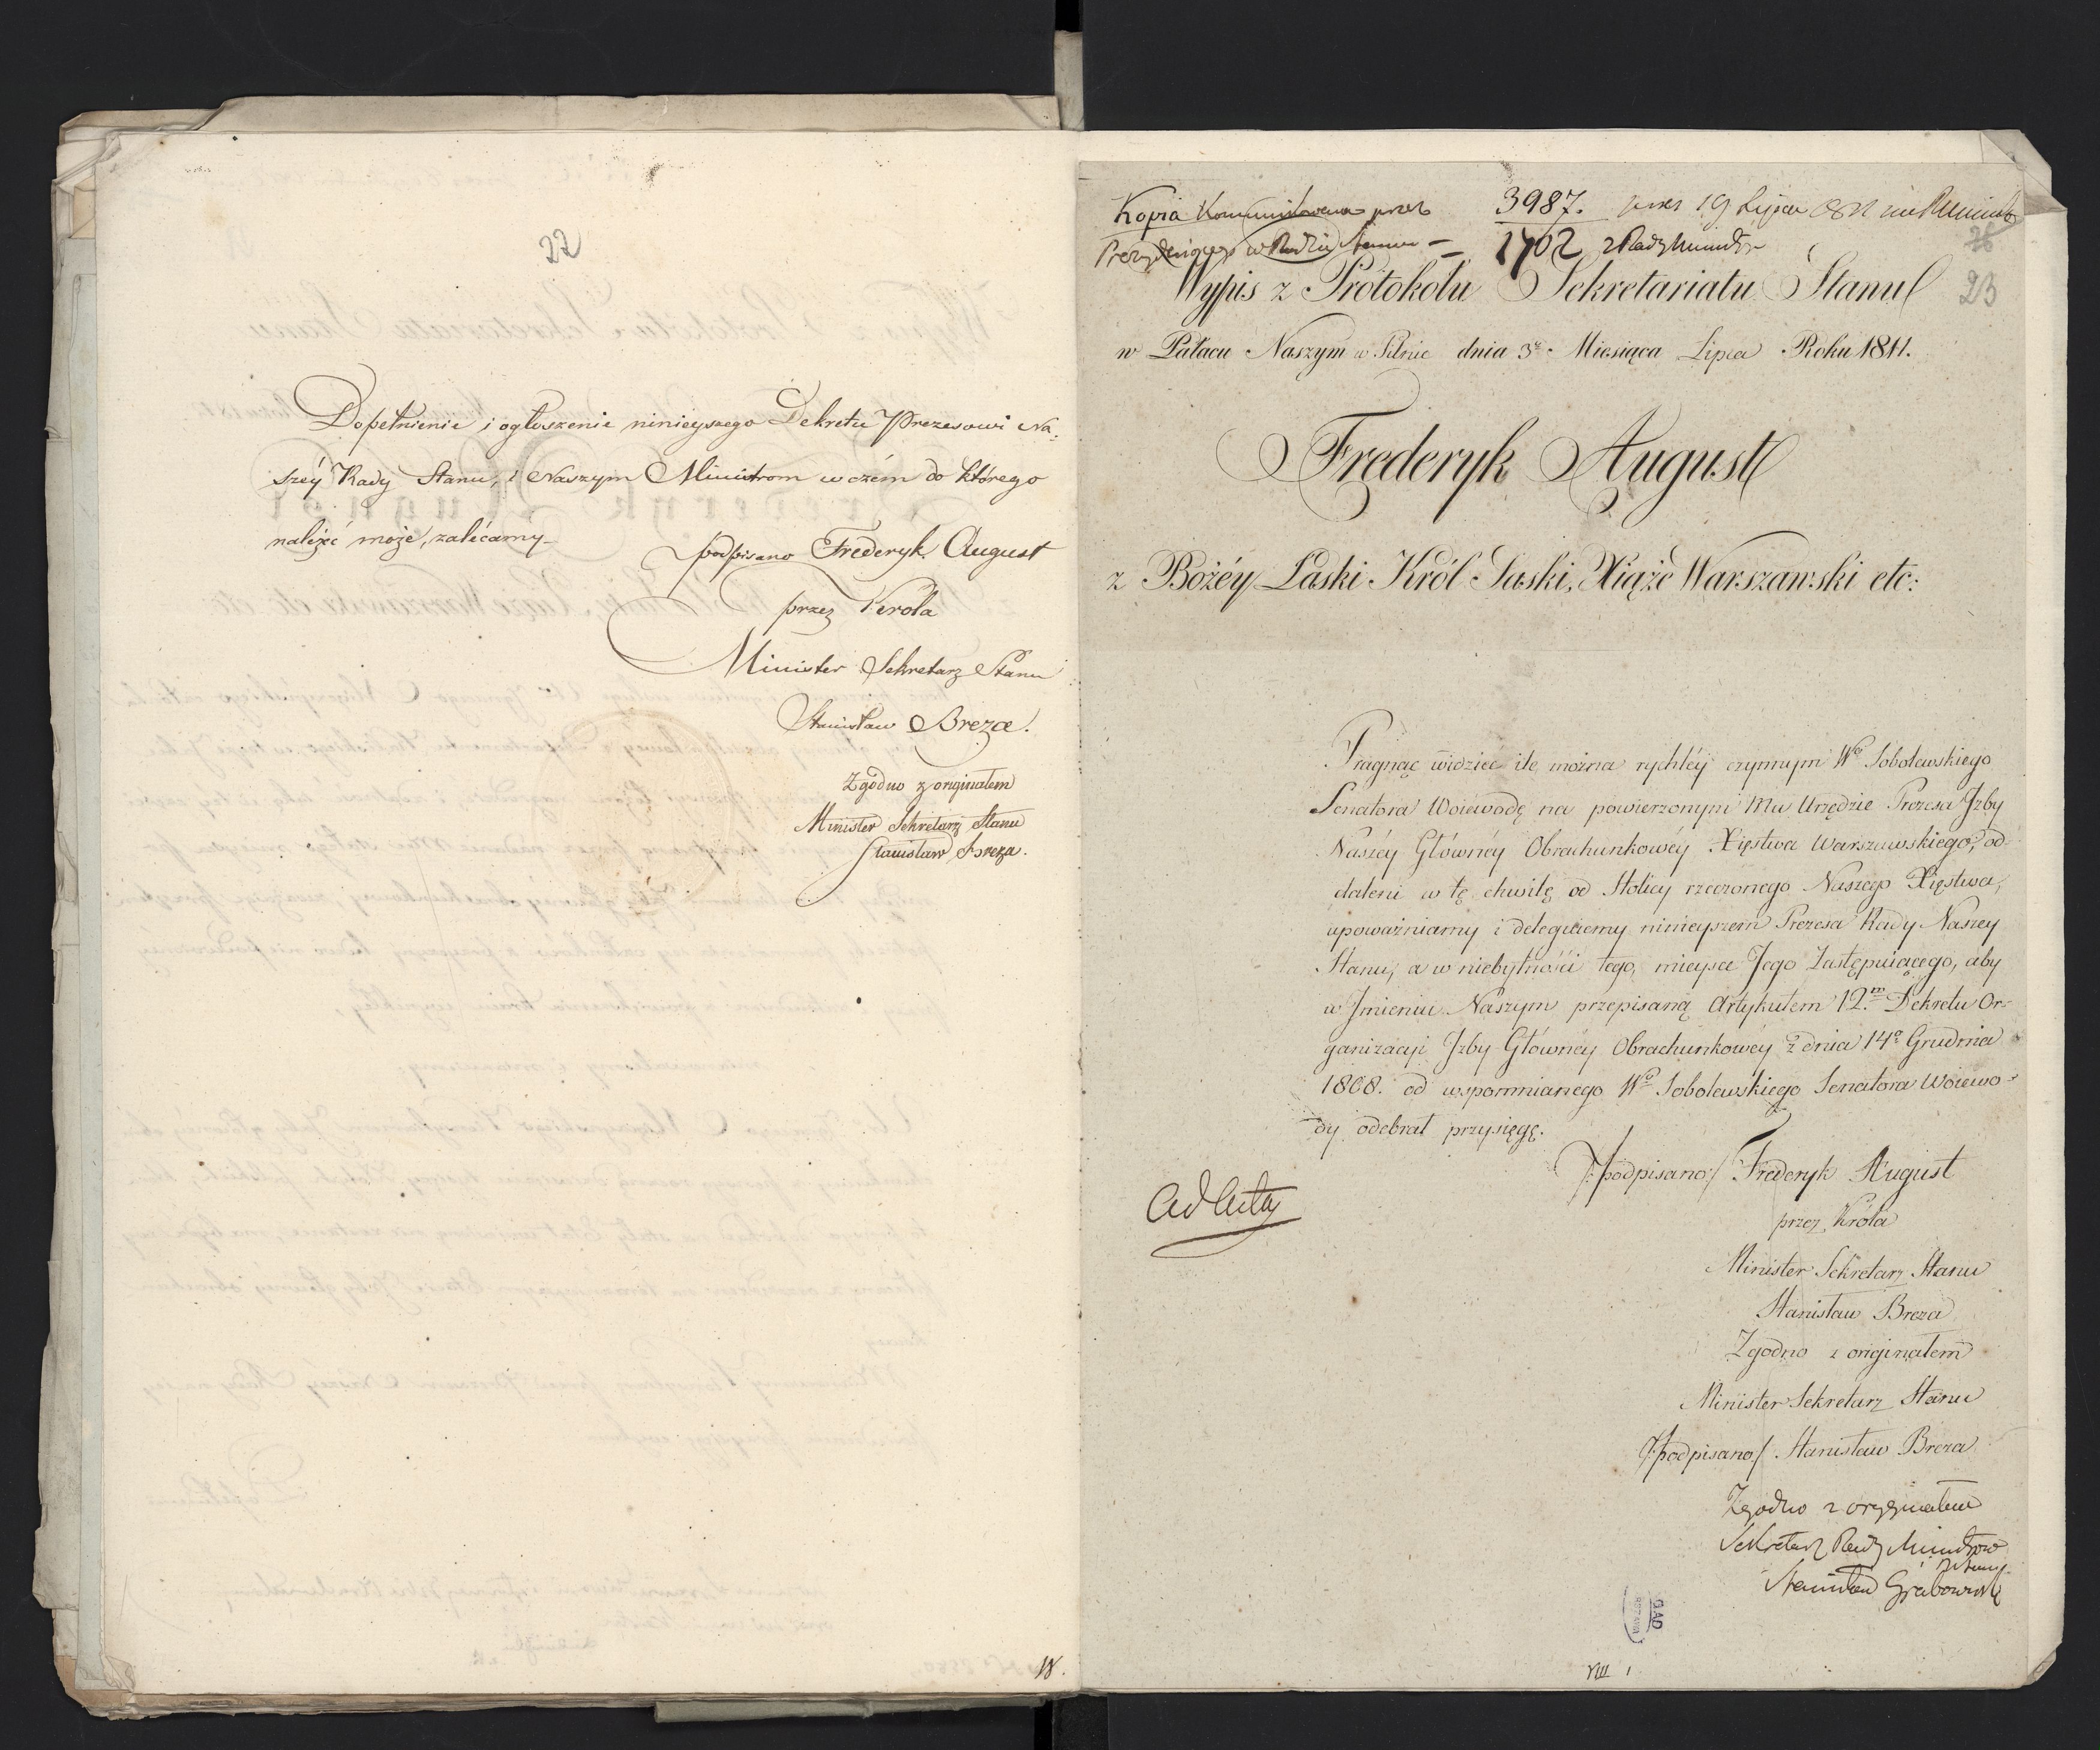 22
Dopełnienie i ogłoszenie ninieyszego Dekretu Prezesowi Na-
széy Rady Stanu, i Naszym Ministrom w czém do którego
należéć może, zalécamy.
podpisano Frederyk August
przez Króla
Minister Sekretarz Stanu
Stanisław Breza.
Zgodno z originałem
Minister Sekretarz Stanu
Stanisław Breza.
Kopia Kommunikowana przez
w Radzie Stanu –
3987. 19 Lipca
1702 z Rady Ministr
26
23
Wypis z Protokółu Sekretariatu Stanu
w Pałacu Naszym w Pilnic dnia 3º Miesiąca Lipca Roku 1811.
Frederyk August
z Bożéy Łaski Król Saski, Xiąże Warszawski etc:
Pragnąc widzieć ile można rychléy czynnym Wº Sobolewskiego
Senatora Woiewodę na powierzonym Mu Urzędzie Prezesa Izby
Naszéy Głównéy Obrachunkowéy Xięstwa Warszawskiego, od-
daleni w tę chwilę od Stolicy rzeczonego Naszego Xięstwa,
upoważniamy i delegujemy ninieyszem Prezesa Rady Naszey
Stanu, a w niebytności tego, mieysce Jego Zastępuiącego, aby
w Jmieniu Naszym przepisaną Artykułem 12.m Dekretu Or-
ganizacyi Jzby Głównéy Obrachunkowéy z dnia 14º Grudnia
1808. od wspomnianego Wº Sobolewskiego Senatora Woiewo-
dy odebrał przysięgę.
/:podpisano:/ Frederyk August
przez Króla
Minister Sekretarz Stanu
Stanisław Breza
Zgodno z originałem
Minister Sekretarz Stanu
/:podpisano/ Stanisław Breza
Ad Acta
Zgodno z oryginałem
Sekretarz Rady Ministrów
Stanisław Grabowski
VIII